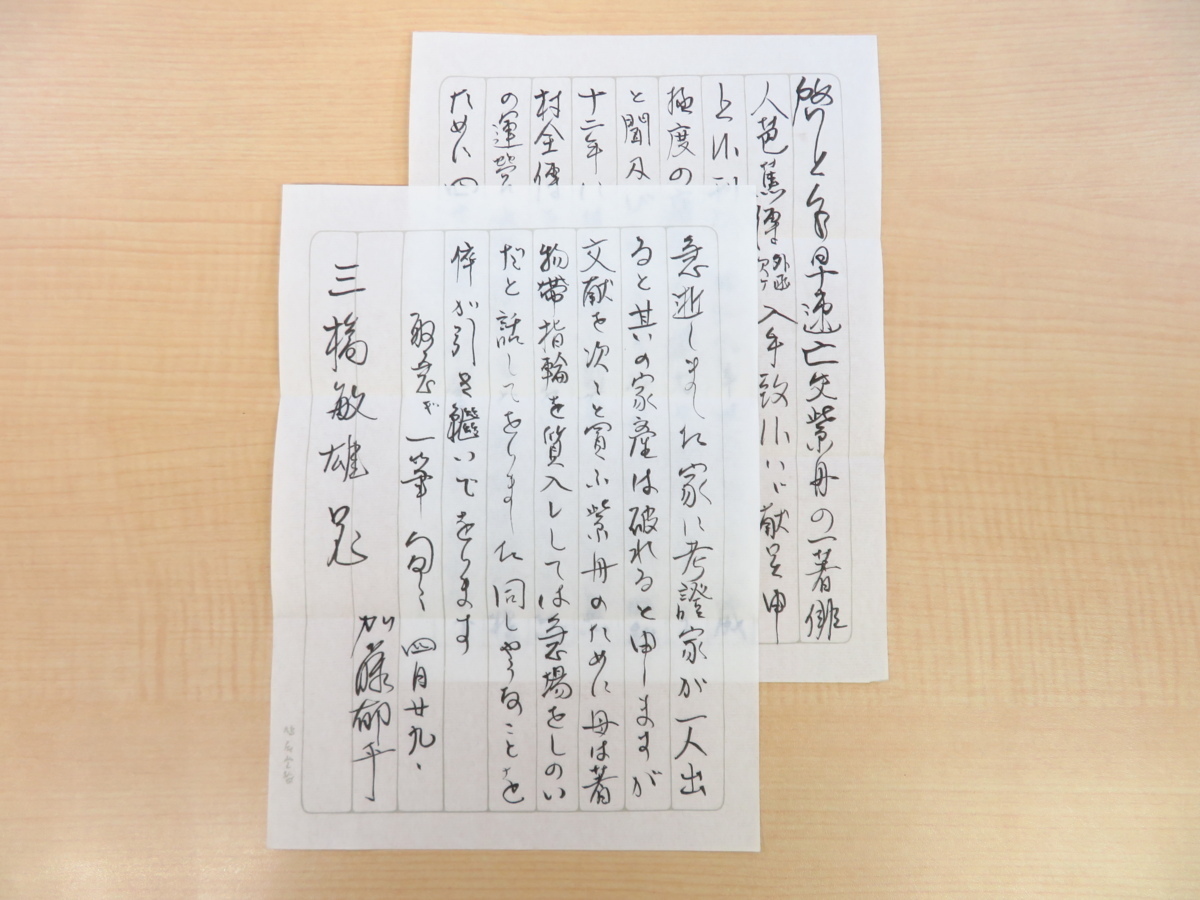 早速亡父紫舟の一著俳
人芭蕉傳 入手致 献呈申
上
極度の
と聞及
十二年
村全傳
の運営
ために四
急逝しました家に考證家が一人出
ると其の家産は破れると申しますが
文献を次々と買ふ紫舟のために母は著
物帯指輪を質入しては急場をしのい
だと話してをりました同じやうなことを
倅が引き継いでをります
取急ぎ一筆 匆々 四月廿九、
加藤郁乎
三橋敏雄兄